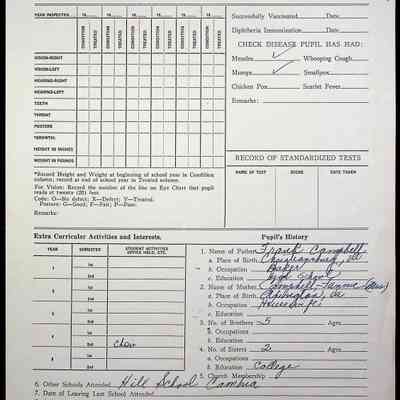 YEAR INSPECTED 19 19 19 19 19 19
CONDITION TREATED CONDITION TREATED CONDITION TREATED CONDITION TREATED CONDITION TREATED CONDITION TREATED
VISION-RIGHT
VISION-LEFT
HEARING-RIGHT
HEARING-LEFT
TEETH
THROAT
POSTURE
HEIGHT IN INCHES
WEIGHT IN POUNDS
*Record Height and Weight at beginning of school year in Condition
column, record at end of school year in Treated column.
For Vision: Record the number of the line on Eye Chart that pupil
reads at twenty (20) feet.
Code: O—No defect; X—Defect; V—Treated.
Posture: G—Good; F—Fair; P—Poor.
Remarks:
Successfully Vaccinated Date
Diphtheria Immunization Date
CHECK DISEASE PUPIL HAS HAD:
Measles ✓ Whooping Cough
Mumps ✓ Smallpox
Chicken Pox Scarlet Fever
Remarks:
RECORD OF STANDARDIZED TESTS
NAME OF TEST SCORE DATE TAKEN
Extra Curricular Activities and Interests.
YEAR SEMESTER STUDENT ACTIVITIES OFFICE HELD, ETC.
1 1st
2nd
2 1st
2nd
3 1st
2nd
4 1st
2nd Choir
5 1st
2nd
Pupil's History
1. Name of Father Frank Campbell
a. Place of Birth Christiansburg, Va
b. Occupation Baker
c. Education High School
2. Name of Mother Campbell-Fannie (Mrs)
a. Place of Birth Abington, Va
b. Occupation Housewife
c. Education
3. No. of Brothers 5 Ages
a. Occupations
b. Education
4. No. of Sisters 2 Ages
a. Occupations
b. Education College
5. Church Membership
6. Other Schools Attended Hill School Cambria
7. Date of Leaving Last School Attended